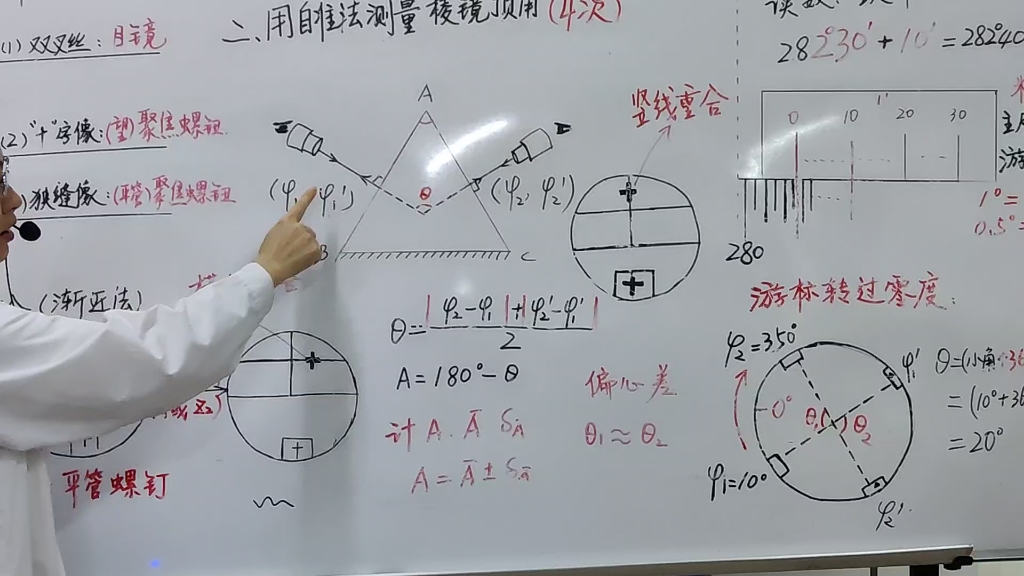 (1) 双叉丝: 目镜
(2)"十"字像:(望)聚焦螺钮
狭缝像:(平管)聚焦螺钮
(渐近法)
平管螺钉
二、用自准法测量棱镜顶角(4次)
A
θ
(φ₁, φ₁′)
(φ₂, φ₂′)
B
C
竖线重合
θ=(|φ₂-φ₁|+|φ₂′-φ₁′|)/2
A=180°-θ
计 A. A̅ S_A̅
A=A̅±S_A̅
偏心差
θ₁≈θ₂
282°30′+10′=282°40
0 1′ 10 20 30
主
游
1°=
0.5°=
280
游标转过零度:
φ₂=350°
φ₁′
0°
θ₁
θ₂
φ₁=10°
φ₂′
θ=(小角+36
=(10°+36
=20°